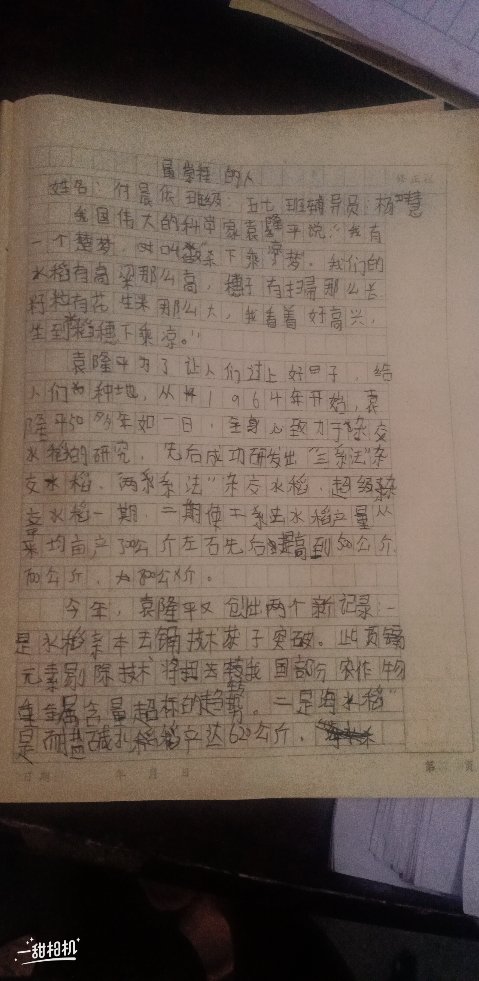 最掌握的人
姓名：付晨依 班级：五七班辅导员：杨慧
我国伟大的科学家袁隆平说："我有
一个梦，叫做禾下乘凉梦。我们的
水稻有高粱那么高，穗子有扫帚那么长
籽粒有花生果那么大，我看着好高兴，
坐到稻穗下乘凉。"
袁隆平为了让人们过上好日子，给
人们种地，从1964年开始，袁
隆平50多年如一日，全身心致力于杂交
水稻的研究，先后成功研发出"三系法"杂
交水稻，两系法"杂交水稻，超级杂
交水稻一期，二期使水稻产量从
平均亩产300公斤左右先后提高到500公斤，
700公斤，为800公斤。
今年，袁隆平又创出两个新记录：一
是水稻亲本去镉技术获于突破。此项镉
元素剔除技术将扭转我国部分农作物
重金属含量超标的趋势。二是海水稻"
是耐盐碱水稻产达620公斤，
日期 年 月 日
第 页
一甜相机